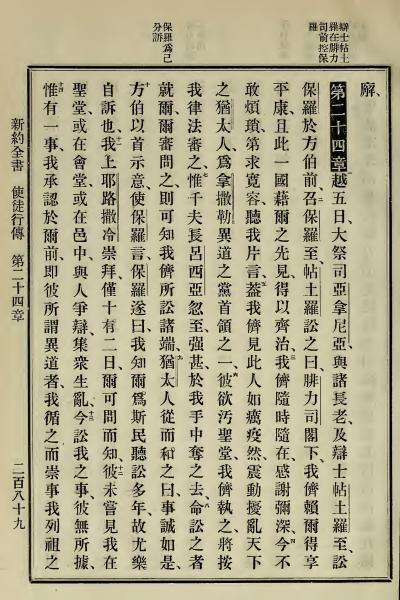 辯士帖土
羅在腓力
司前控保
羅
保羅爲己
分訴
廨、
第二十四章越五日、大祭司亞拿尼亞、與諸長老、及辯士帖土羅至、訟
保羅於方伯前、二召保羅至、帖土羅訟之曰、腓力司閣下、我儕賴爾得享
平康、且此一國藉爾之先見、得以齊治、三我儕隨時隨在感謝彌深、四今不
敢煩瑣、第求寬容、聽我片言、五蓋我儕見此人如癘疫然、震動擾亂天下
之猶太人、爲拿撒勒異道之黨首領之一、六彼欲汚聖堂、我儕執之、將按
我律法審之、七惟千夫長呂西亞忽至、强甚、於我手中奪之去、八命訟之者
就爾、爾審問之、則可知我儕所訟諸端、九猶太人從而和之曰、事誠如是、
十方伯以首示意、使保羅言、保羅遂曰、我知爾爲斯民聽訟多年、故尤樂
自訴也、十一我上耶路撒冷崇拜、僅十有二日、爾可問而知、十二彼未嘗見我在
聖堂、或在會堂、或在邑中、與人爭辯、集衆生亂、十三今訟我之事、彼無所據、
十四惟有一事、我承認於爾前、即彼所謂異道者、我循之而崇事我列祖之
新約全書　使徒行傳　第二十四章
二百八十九